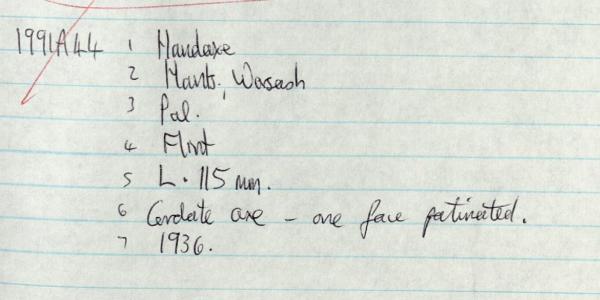 1991A44 1 Handaxe
2 Hants, Warsash
3 Pal.
4 Flint
5 L. 115 mm.
6 Cordate axe - one face patinated.
7 1936.